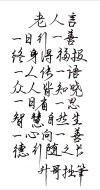 老人言
一日行一善
终身得福报
一人传一语
众人皆知晓
一日有一思
智慧自然生
一心向一善
德行随之长
升哥拙笔